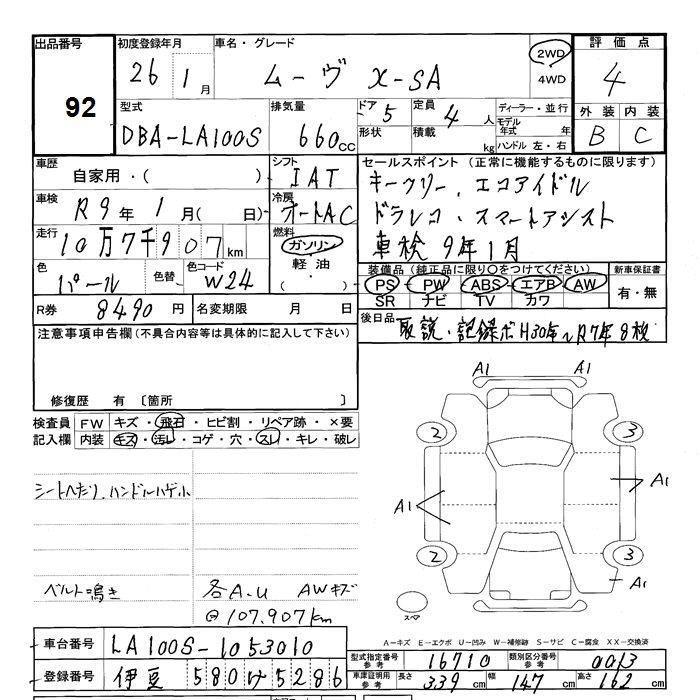 出品番号 初度登録年月 車名・グレード 2WD 評価点
92 26 1月 ムーヴ X-SA 4WD 4
型式 排気量 ドア 5 定員 4人 ディーラー・並行 外装 内装
DBA-LA100S 660cc 形状 積載 kg モデル年式 年 B C
ハンドル 左・右
車歴 自家用・( ) シフト IAT セールスポイント (正常に機能するものに限ります)
車検 R9年 1月( 日) 冷房 オートAC キーフリー、エコアイドル
走行 10万7千907km 燃料 ガソリン ドラレコ・スマートアシスト
軽油・( ) 車検 9年1月
色 パール 色替 色コード W24 装備品 (純正品に限り○をつけてください) 新車保証書
PS PW ABS エアB AW 有・無
SR ナビ TV カワ
R券 8490円 名変期限 月 日
後日品 取説・記録ボ H30年~R7年8枚
注意事項申告欄 (不具合内容等は具体的に記入して下さい)
修復歴 有 〔箇所 〕
検査員 FW キズ・飛石・ヒビ割・リペア跡・×要
記入欄 内装 キズ・汚レ・コゲ・穴・スレ・キレ・破レ
シートへたり、ハンドルハゲ小
ベルト鳴き 各A.U AWキズ
@107.907km
A1 A1
2 3
A1 A1
2 3
A1
スペア
A-キズ E-エクボ U-凹み W-補修跡 S-サビ C-腐食 XX-交換済
車台番号 LA100S-1053010
型式指定番号 参考 16710 類別区分番号 参考 0013
登録番号 伊豆 580 け 5286
車庫証明用 参考 長さ 339cm 幅 147cm 高さ 162cm
主要諸元